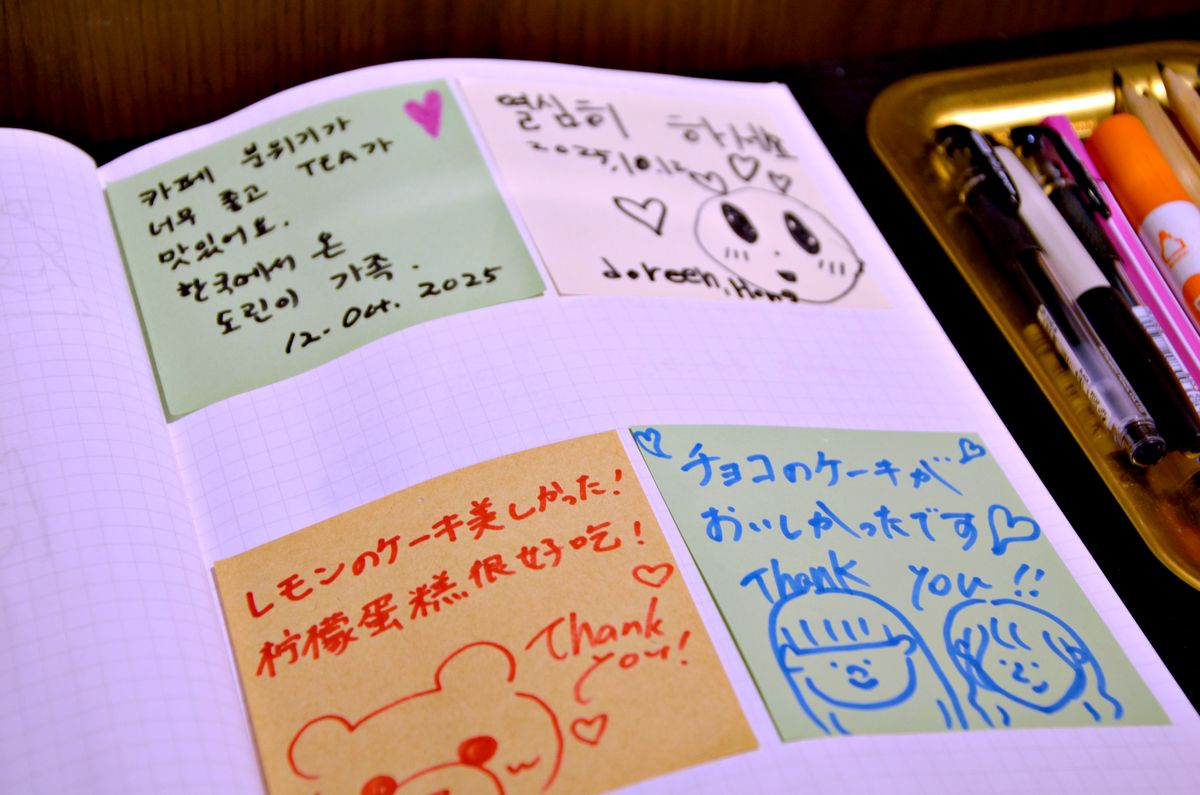 카페 분위기가
너무 좋고 TEA가
맛있어요.
한국에서 온
도린이 가족.
12. Oct. 2025
열심히 하세요
2025.10.12
doreen, Hong
レモンのケーキ美しかった!
柠檬蛋糕很好吃!
Thank
You!
チョコのケーキが
おいしかったです
Thank You!!